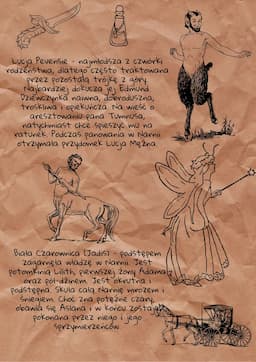 Łucja Pevensie - najmłodsza z czwórki
rodzeństwa, dlatego często traktowana
przez pozostałą trójkę z góry.
Najbardziej dokucza jej Edmund.
Dziewczynka naiwna, dobroduszna,
troskliwa i opiekuńcza. Na wieść o
aresztowaniu pana Tumnusa,
natychmiast chce spieszyć mu na
ratunek. Podczas panowania w Narnii
otrzymała przydomek Łucja Mężna.
Biała Czarownica (Jadis) - podstępem
zagarnęła władzę w Narnii. Jest
potomkinią Lilith, pierwszej żony Adama
oraz pół-dżinem. Jest okrutna i
podstępna. Skuła całą Narnię mrozem i
śniegiem. Choć zna potężne czary,
obawia się Aslana i w końcu zostaje
pokonana przez niego i jego
sprzymierzeńców.